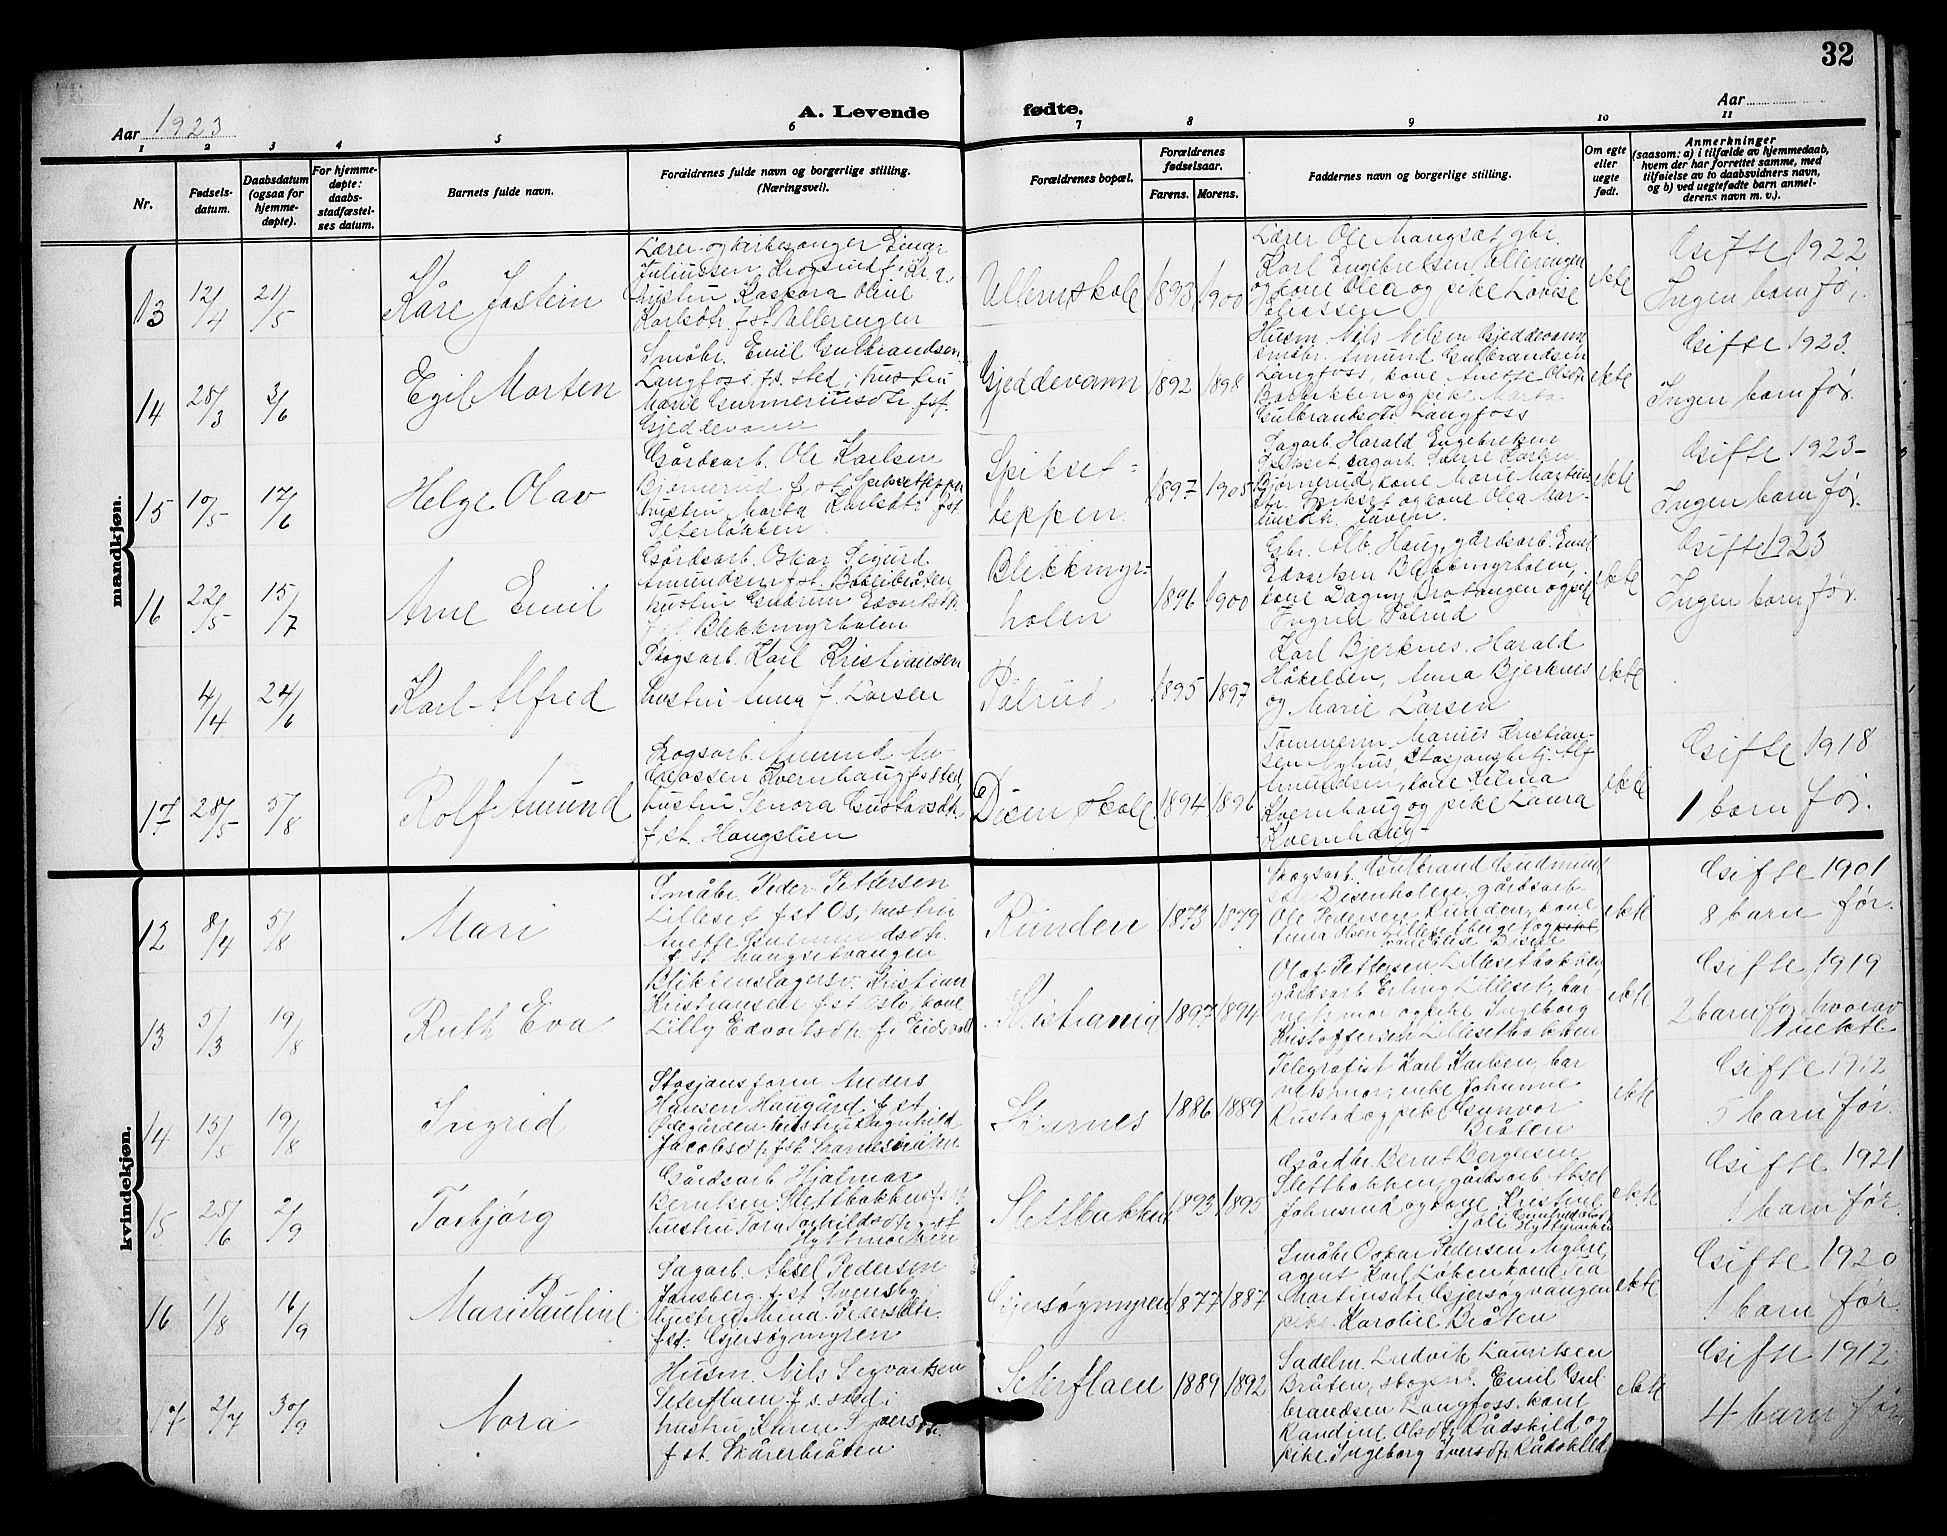 32
A. Levende fødte.
Aar 1923
Aar
1 2 3 4 5 6 7 8 9 10 11
Nr.
Fødsels-
datum.
Daabsdatum
(ogsaa for
hjemme-
døpte).
For hjemme-
døpte:
daabs-
stadfæstel-
ses datum.
Barnets fulde navn.
Forældrenes fulde navn og borgerlige stilling.
(Næringsvei).
Forældrenes bopæl.
Forældrenes
fødselsaar.
Farens. Morens.
Faddernes navn og borgerlige stilling.
Om egte
eller
uegte
født.
Anmerkninger
(saasom: a) i tilfælde av hjemmedaab,
hvem der har forrettet samme, med
tilføielse av to daabsvidners navn,
og b) ved uegtefødte barn anmel-
derens navn m. v.).
mandkjøn.
13 12/4 21/5 Kåre Jostein
Lærer og kirkesanger Einar
Juliussen
hustru Kaspara Oline
Karlsdtr. f. st. Vallerengen
Ullern skole 1893 1900
Lærer Ole Mangset, gbr.
Karl Engebretsen Vallerengen
og kone Olea og pike Lovise
ekte
Gifte 1922
Ingen barn før.
14 28/3 3/6 Egil Morten
Småbr. Emil Gulbrandsen
Langfoss f. s. sted, hustru
Marie Gunneriusdtr. f. st.
Gjeddevann
Gjeddevann 1892 1898
Husm. Nils Nilsen Gjeddevann
småbr. Amund Gulbrandsen
Langfoss, kone Anette Olsdtr.
og pike Marta
Gulbrandsdtr. Langfoss
ekte
Gifte 1923.
Ingen barn før.
15 10/5 17/6 Helge Olav
Gårdsarb. Ole Karlsen
Bjørnerud f. st. Spiksetteppen
hustru Marta Karlsdtr. f. st.
Peterløkken
Spikset-
teppen 1897 1905
Sagarb. Harald Engebretsen
Spikset, sagarb. Karlsen
Bjørnerud, kone Marie Martins-
dtr. Spikset og kone Olea Mar-
tinsdtr.
ekte
Gifte 1923-
Ingen barn før.
16 22/5 15/7 Arne Emil
Gårdsarb. Oskar Sigurd
Amundsen f. st.
hustru Gudrun Edvartsdtr.
f. st. Blekkmyrholen
Blekkmyr-
holen 1896 1900
Gbr. Alb. Haug, gårdsarb. Emil
Edvartsen Blekkmyrholen,
kone Dagny Brotangen og pike
Ingrid Pålrud
ekte
Gifte 1923
Ingen barn før.
4/14 24/6 Karl-Alfred
Skogsarb. Karl Kristiansen
hustru Anna f. Larsen
Pålrud 1895 1897
Karl Bjerknes, Harald
Håkelsen, Anna Bjerknes
og Marie Larsen
ekte
17 28/5 5/8 Rolf Amund
Skogsarb. Amund An-
dreassen Kvernhaug f. s. sted,
hustru Senora Gustavsdtr.
f. st. Haugstien
Disen skole 1894 1896
Tømmerm. Marius Kristian-
sen Nyhus, Stasjonsbetj. Alf
Amundsen, kone
Kvernhaug og pike Laura
Kvernhaug-
ekte
Gifte 1918
1 barn før.
kvindekjøn.
12 8/4 5/8 Mari
Småbr. Peder Pettersen
Lilleset f. st. Os, hustru
Anette Gudmundsdtr.
f. st. Mangsetvangen
Runden 1873 1879
Skogsarb. Gulbrand Gudmund
sen Disenholen, gårdsarb.
Ole Pedersen Runden, kone
Anna Olsen Lillesetberget og pike
kone Else Disen
ekte
Gifte 1901
8 barn før.
13 5/3 19/8 Ruth Eva
Blikkenslagersv. Kristian
Kristiansen f. st. Oslo, kone
Lilly Edvartsdtr. f. i Eidsvoll
Kristiania 1897 1894
Olaf Pettersen Lillesetbakken,
gårdsarb. Erling Lilleset, bar-
nets mor og pike Ingeborg
Kristoffersen Lillesetbakken
ekte
Gifte 1919
2 barn før hvorav
1 uekte
14 15/5 19/8 Ingrid
Stasjonsform. Anders
Hansen Haugård f. st.
hustru Ragnhild
Jacobsdtr. f. st.
Skarnes 1886 1889
Telegrafist Karl Karlsen, bar
nets mor, enke Johanne
Rustad og pike Gunvor
Bråten
ekte
Gifte 1912
5 barn før.
15 25/6 2/9 Torbjørg
Gårdsarb Hjalmar
Berntsen Slettbakken
hustru Tora f. st.
Hyttmoen
Slettbakken 1893 1895
Gårdbr. Bernt Bergersen
Slettbakken, gårdsarb. Aksel
Johnsrud og kone Kristine
ekte
Gifte 1921
1 barn før.
16 1/8 16/9 Mari Pauline
Sagarb. Aksel Pedersen
f. st. Svensby
hustru Mina Pedersdtr.
f. st. Gjersøgmyren
Gjersøgmyren 1877 1887
Småbr Oskar Pedersen Nyhre,
agent Karl Løken kone
Martinsdtr Gjersøgvangen
pike Karoline Bråten
ekte
Gifte 1920
1 barn før.
17 2/7 30/9 Nora
Husm. Nils Sigvartsen
Seterflaen f. s. sted,
hustru Karen
f. st. Skårerbråten
Seterflaen 1889 1892
Sadelm. Ludvik Lauritsen
Bråten, Emil Gul
brandsen Langfoss, kone
Randine Olsdtr. Rådskild og
pike Ingeborg Iversdtr. Rådskild
ekte
Gifte 1912
4 barn før